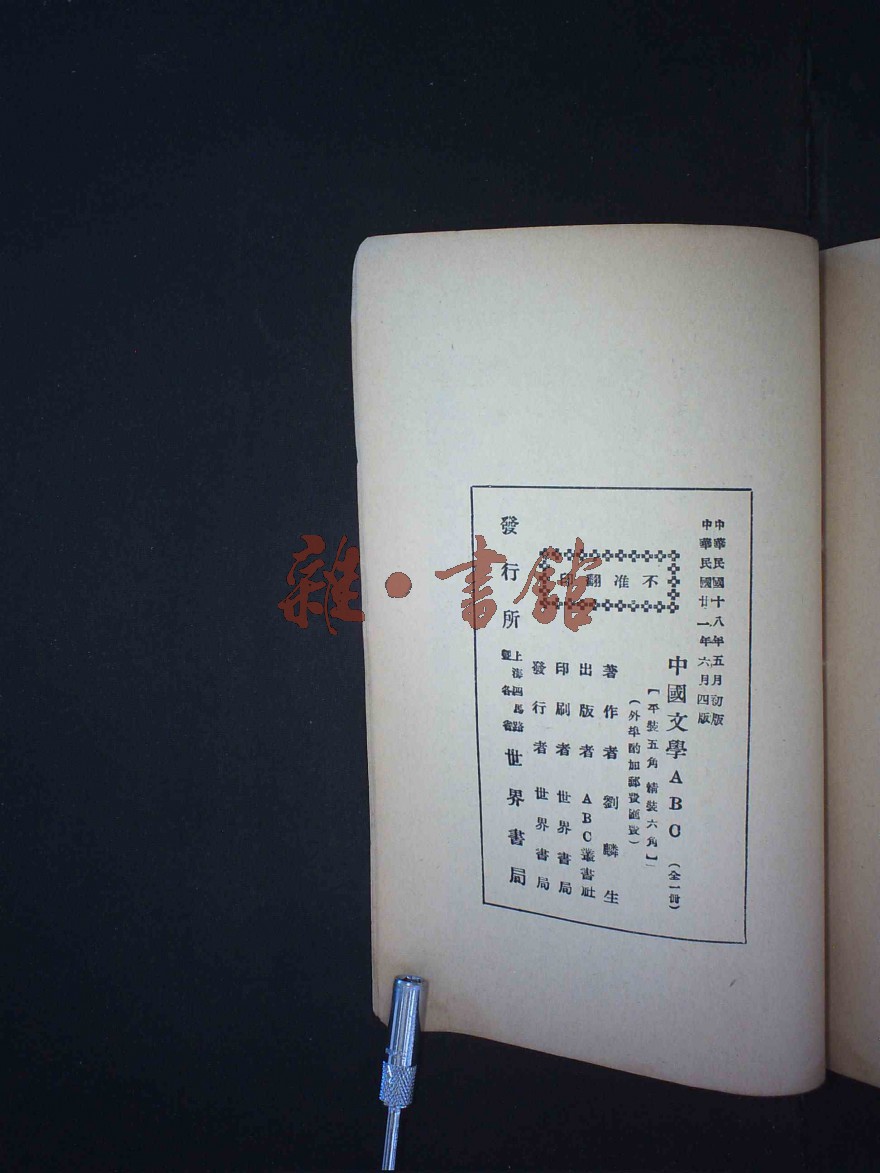 中華民國十八年五月初版
中華民國廿一年六月四版
中國文學ABC（全一冊）
【平裝五角 精裝六角】
（外埠酌加郵費匯費）
不准翻印
著作者 劉麟生
出版者 ABC叢書社
印刷者 世界書局
發行者 世界書局
發行所 上海四馬路
暨各省 世界書局
雜·書館